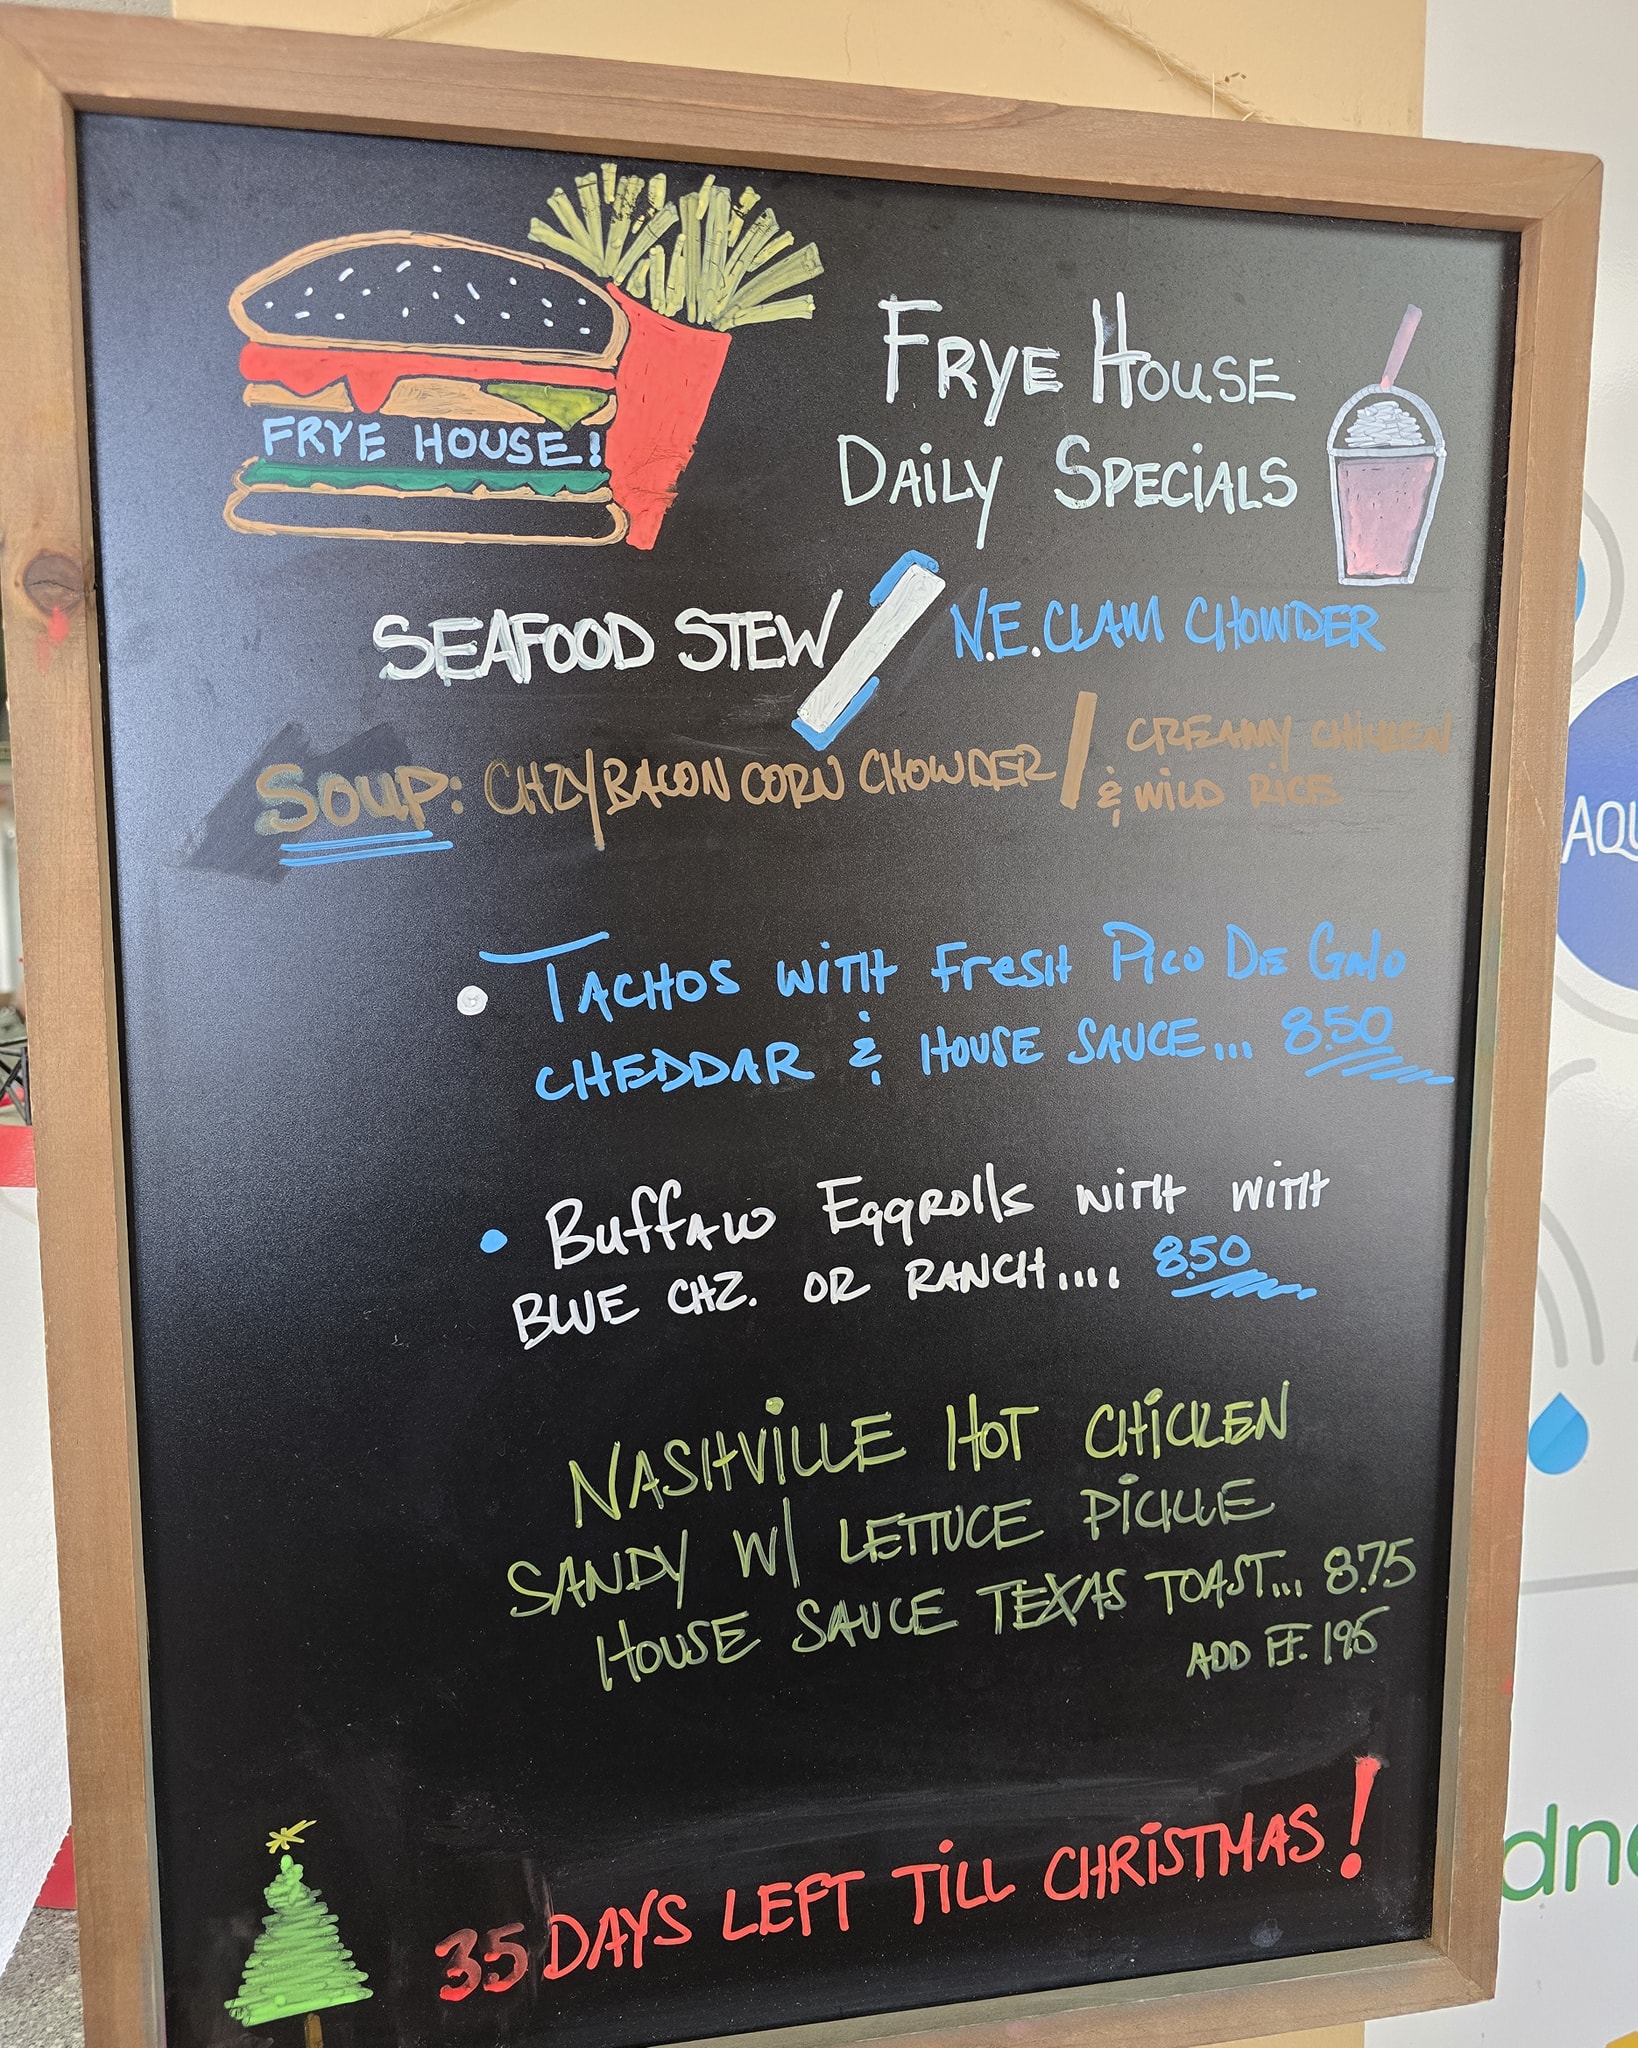 FRYE HOUSE!
FRYE HOUSE
DAILY SPECIALS
SEAFOOD STEW / N.E. CLAM CHOWDER
SOUP: CHZY BACON CORN CHOWDER / CREAMY CHICKEN
& WILD RICE
TACHOS WITH FRESH PICO DE GALO
CHEDDAR & HOUSE SAUCE... 8.50
BUFFALO EGGROLLS WITH WITH
BLUE CHZ. OR RANCH.... 8.50
NASHVILLE HOT CHICKEN
SANDY W/ LETTUCE PICKLE
HOUSE SAUCE TEXAS TOAST... 8.75
ADD FF. 1.95
35 DAYS LEFT TILL CHRISTMAS!
AQU
dne